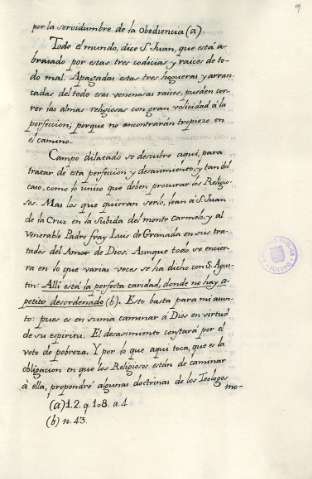 por la servidumbre de la Obediencia (a).
Todo el mundo, dice S. Juan, que està a-
brasado por estas tres codicias y raices de to-
do mal. Apagadas estas tres hogueras y arran-
cadas del todo esas venenosas raices, pueden cor-
rer las almas religiosas con gran velocidad á la
perfeccion; porque no encontrarán tropiezo en
el camino.
Campo dilatado se descubre aquí, para
tratar de esta perfeccion y desasimiento,
como lo único que deben procurar los Religio-
sos. Mas los que quieran serlo, lean à S. Juan
de la Cruz en la Subida del monte Carmelo, y al
Venerable Padre fray Luis de Granada en sus tra-
tados del Amor de Dios. Aunque todo se encier-
ra en lo que varias veces se ha dicho con S. Agus-
tin: Alli está la perfecta caridad, donde no hay a-
petito desordenado (b). Esto basta para mi asun-
to: pues es en suma caminar á Dios en virtud
de su espiritu. El desasimiento constará por el
voto de pobreza. Y por lo que aqui toca, que es la
obligacion en que los Religiosos están de caminar
à ella, propondré algunas doctrinas de los Teologos
mo-
(a) 1.2. q. 108. a. 4
(b) n. 43.